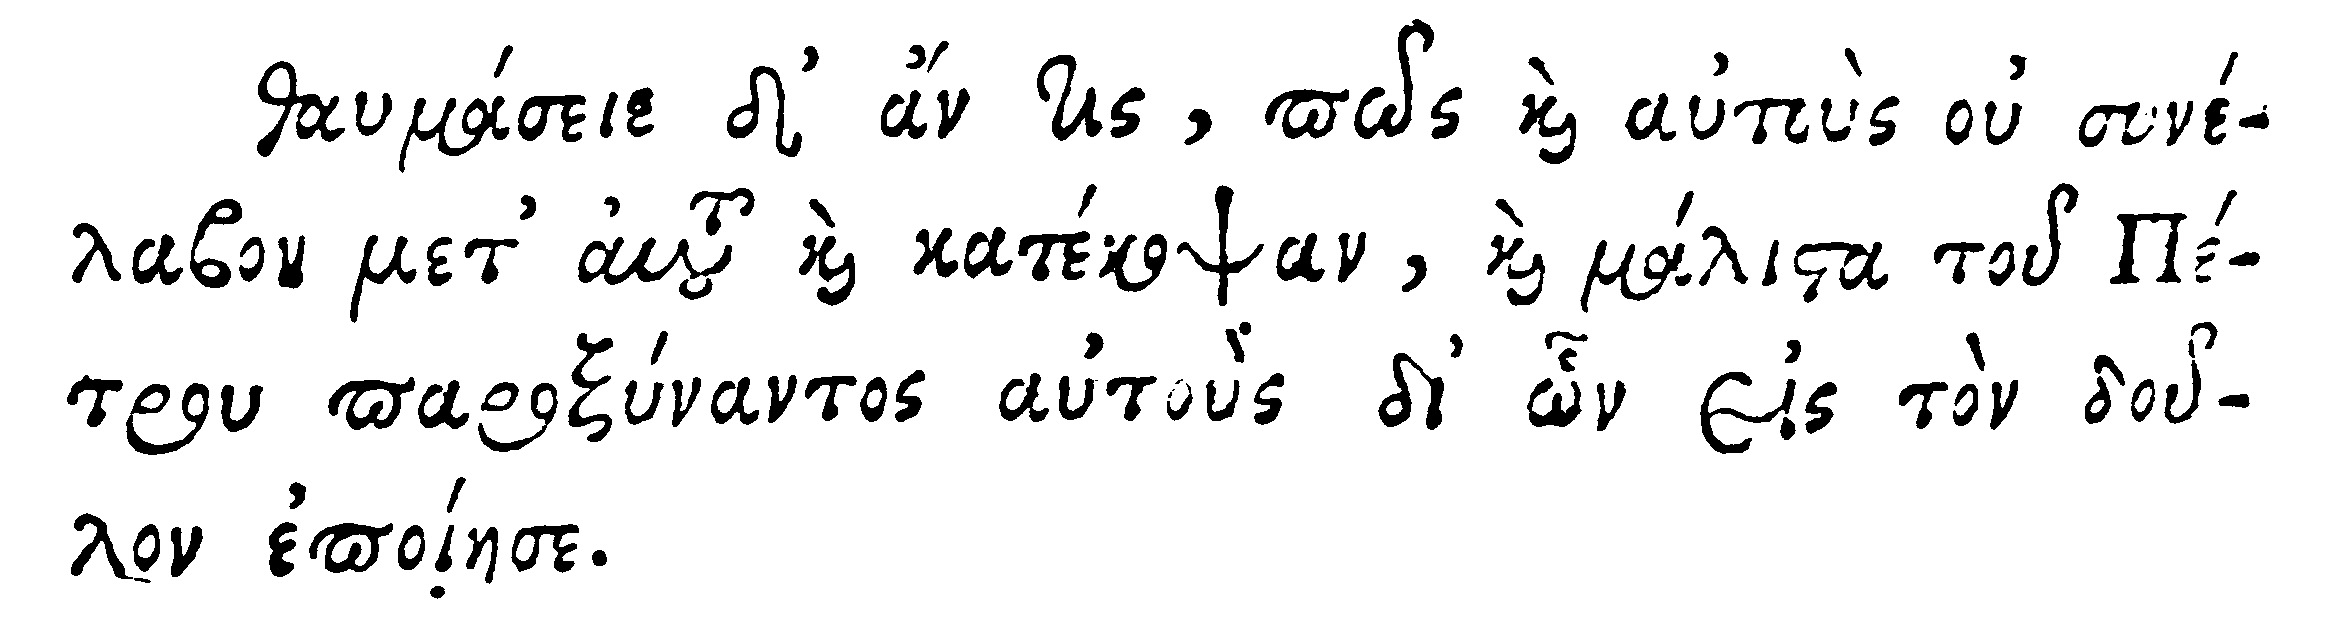 θαυμάσειε δ' ἄν τις, πῶς καὶ αὐτοὺς οὐ συνέ-
λαβον μετ' αὐτοῦ καὶ κατέκοψαν, καὶ μάλιστα τοῦ Πέ-
τρου παροξύναντος αὐτοὺς δι' ὧν εἰς τὸν δοῦ-
λον ἐποίησε.